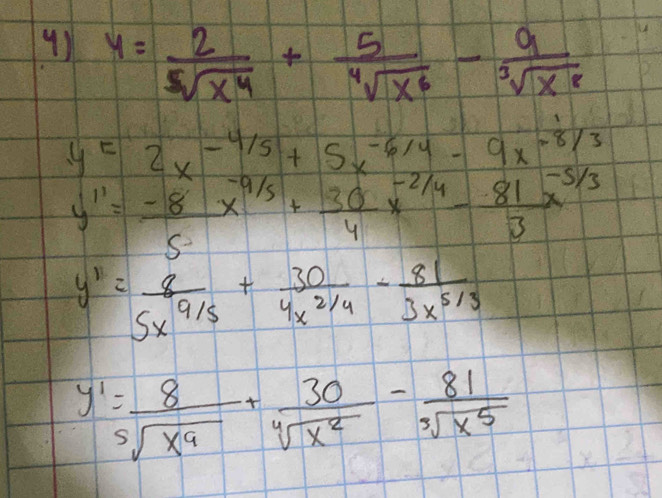 4) y = 2/⁵√(x⁴) + 5/⁴√(x⁶) - 9/³√(x⁸)
y' = 2x^(-4/5) + 5x^(-6/4) - 9x^(-8/3)
y'' = -8/5 x^(-9/5) + 30/4 x^(-2/4) - 81/3 x^(-5/3)
y'' = 8/(5x^(9/5)) + 30/(4x^(2/4)) - 81/(3x^(5/3))
y' = 8/⁵√(x⁹) + 30/⁴√(x²) - 81/³√(x⁵)